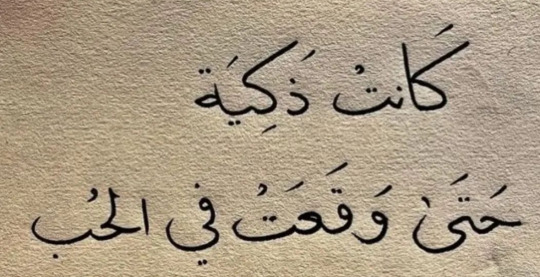 كَانتُ ذَكِيَة
حَتَىٰ وَقَعَتُ في الحُب